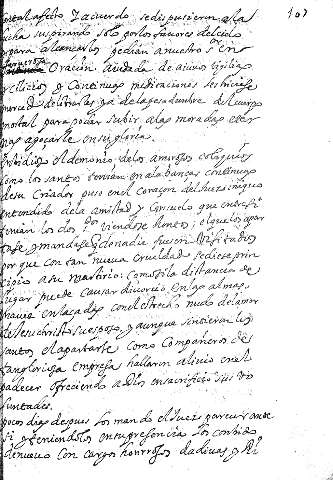 107
mortal afecto y acuerdo se dispusieron a la
lucha suspirando solo por los favores del cielo
y para alcanzarlos pedian a nuestro sr en
fervorosa Oracion ayudada de ayunos vigilias
y continuas mortificaciones les hiciese
merced de librarlas ya de la pesadumbre del cuerpo
mortal para poder subir a las moradas eter
nas a gozarle en su gloria.
el demonio de los amorosos coloquios
como los santos tenian en alabanças continuas
de su Criador puso en el coraçon del Juez iniquo
entendido de la amistad y Consuelo que entre si
tenian los dos viendose Juntos; el que los apar
tase y mandase q donadie fuesen Visitados
por que con tan nueva Crueldad se diese prin
cipio a su martirio: como si la distancia de
lugar puede causar divorcio en las almas
enlaçadas con el estrecho nudo del amor
de Jesuchristo su esposo, y aunque sintieron los
santos el apartarse como Compañeros de
tan gloriosa empresa hallaron alivio en el
padecer ofreciendo a dios en sacrificio sus vo
luntades.
pocos dias despues los mando el Juez parecer ante
si y teniendolos en su presencia los combido
de nuevo con cargos honrrosos dadivas y